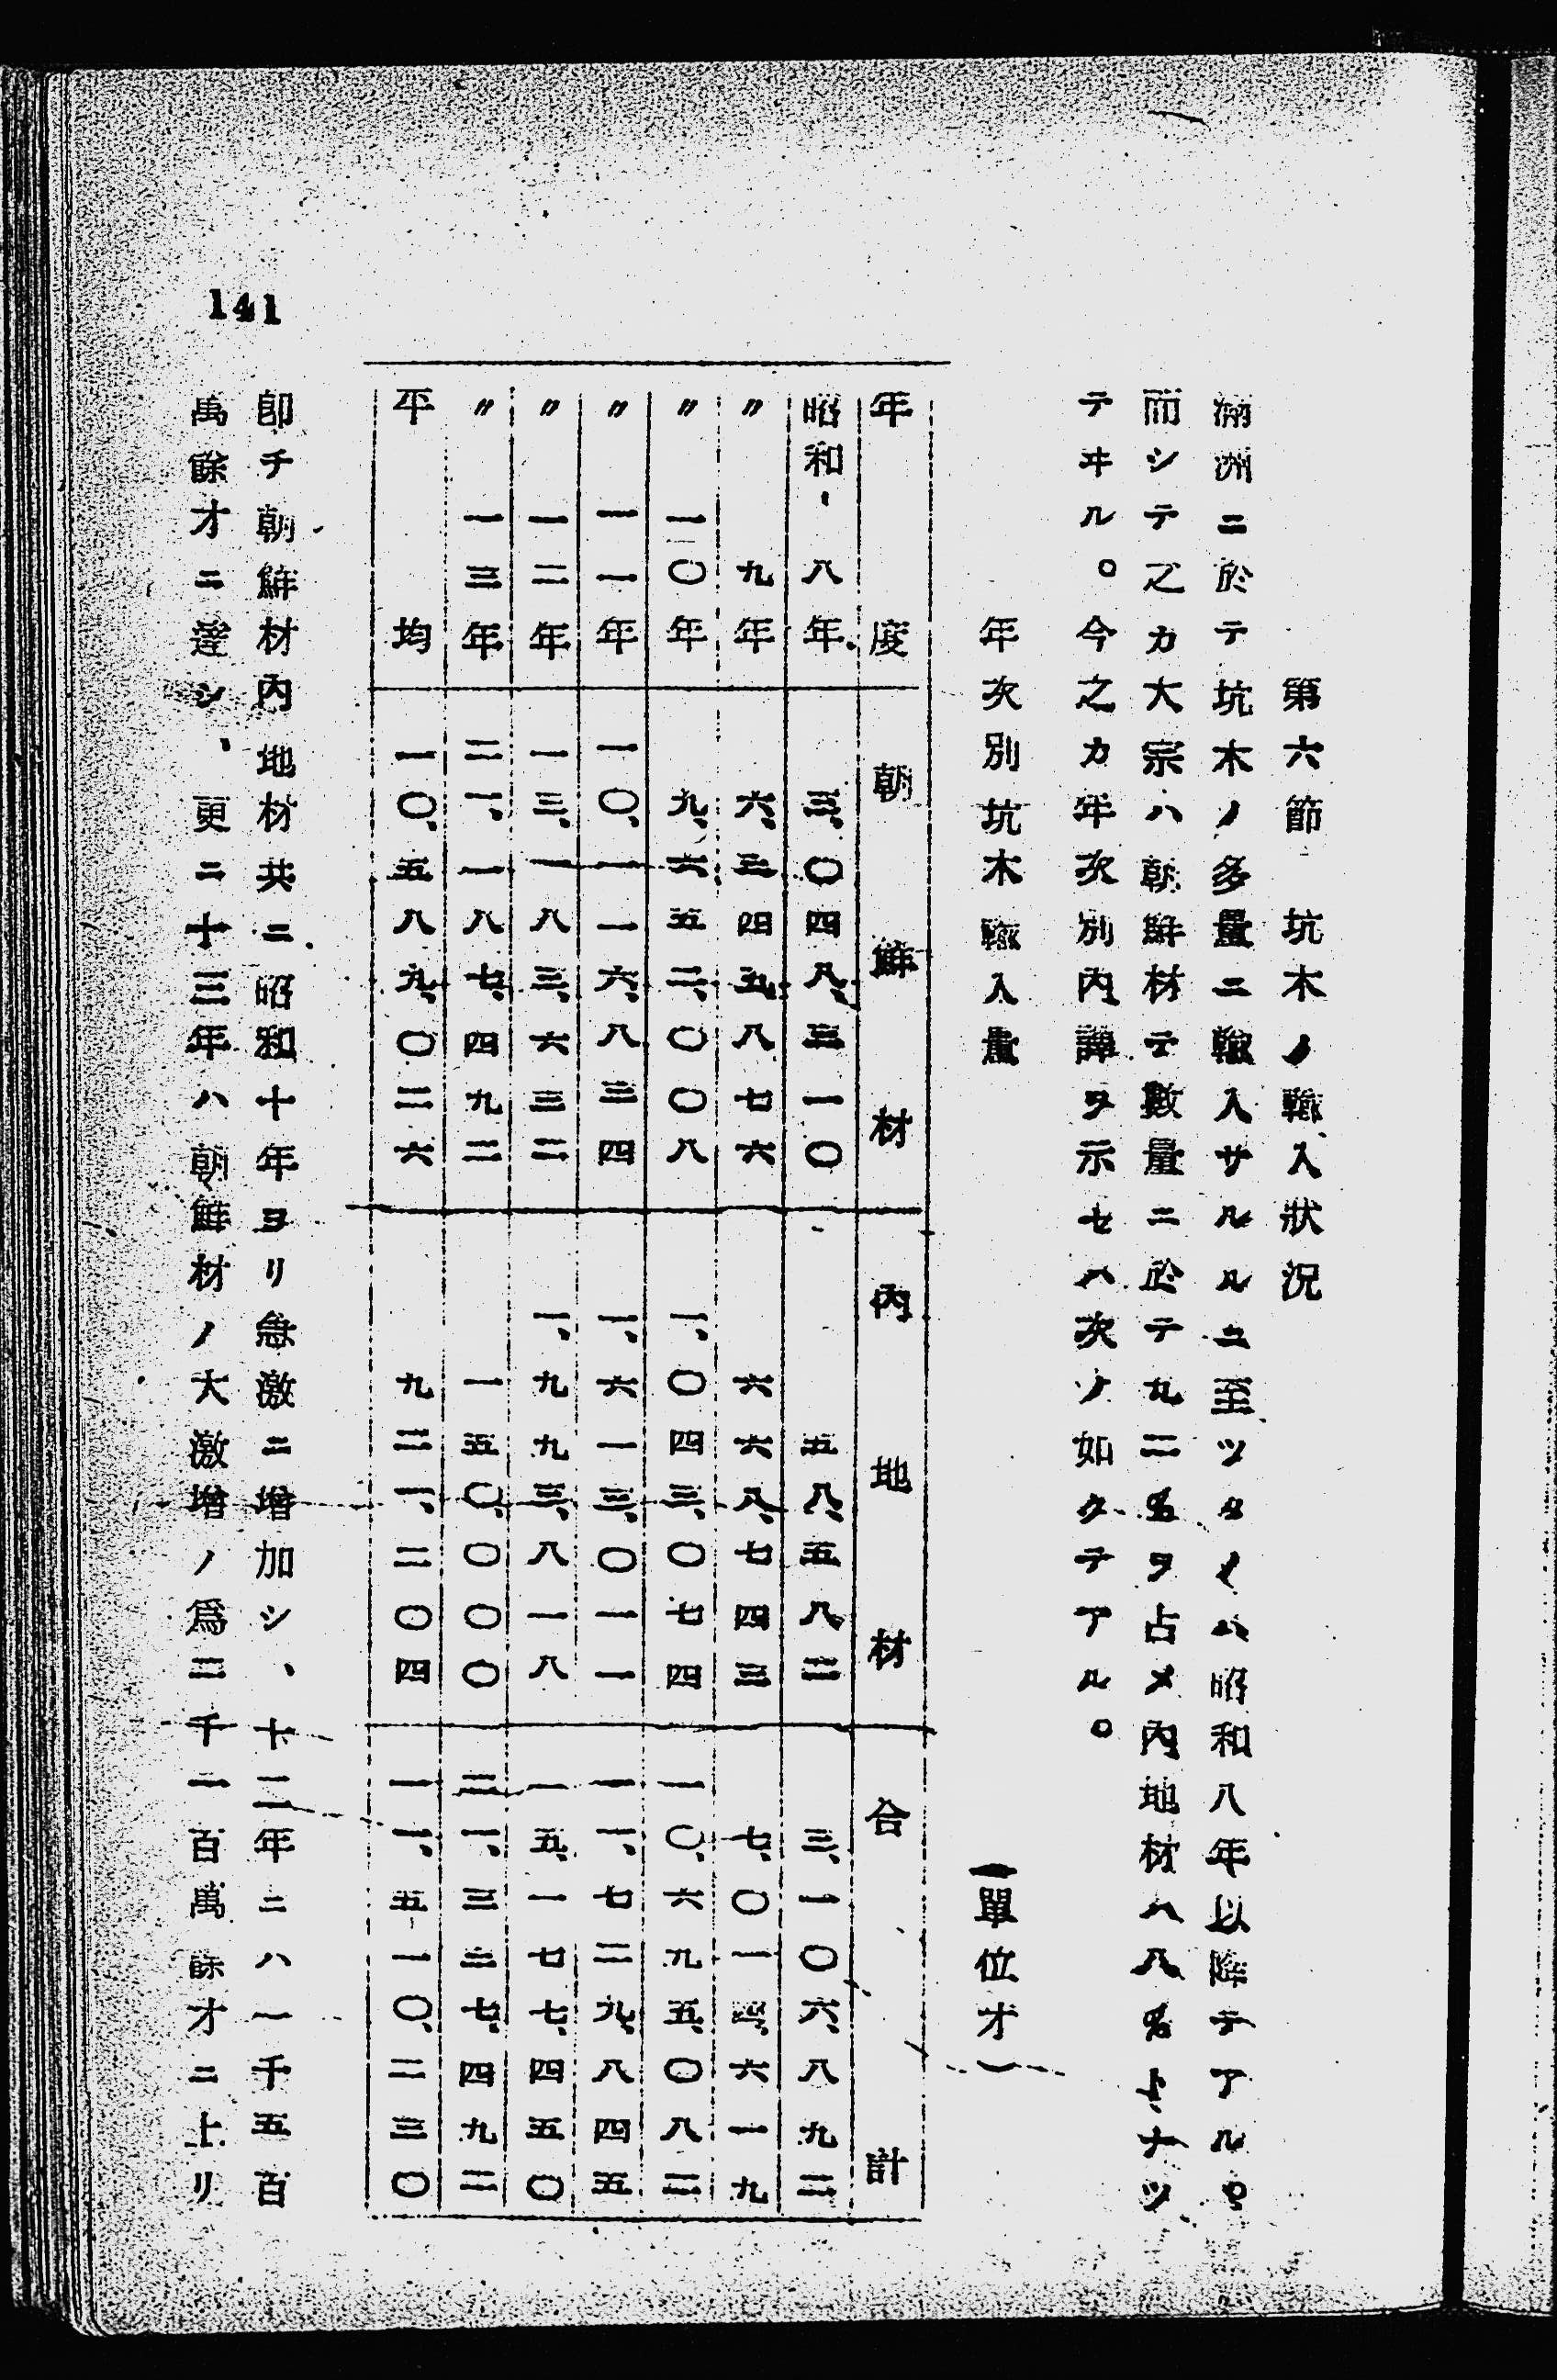 第六節 坑木ノ輸入狀況
滿洲ニ於テ坑木ノ多量ニ輸入サルルニ至ツタノハ昭和八年以降テアル。
而シテ之カ大宗ハ朝鮮材テ數量ニ於テ九二%ヲ占メ內地材ハ八%トナツ
テヰル。今之カ年次別內譯ヲ示セハ次ノ如クテアル。
年次別坑木輸入量 (單位才)
年度 朝鮮材 內地材 合計
昭和、八年 三、〇四八、三一〇 五八、五八二 三、一〇六、八九二
〃 九年 六、三四五、八七六 六六八、七四三 七、〇一四、六一九
〃 一〇年 九、六五二、〇〇八 一、〇四三、〇七四 一〇、六九五、〇八二
〃 一一年 一〇、一一六、八三四 一、六一三、〇一一 一一、七二九、八四五
〃 一二年 一三、一八三、六三二 一、九九三、八一八 一五、一七七、四五〇
〃 一三年 二一、一八七、四九二 一五〇、〇〇〇 二一、三三七、四九二
平均 一〇、五八九、〇二六 九二一、二〇四 一一、五一〇、二三〇
卽チ朝鮮材內地材共ニ昭和十年ヨリ急激ニ增加シ、十二年ニハ一千五百
萬餘才ニ達シ、更ニ十三年ハ朝鮮材ノ大激增ノ爲二千一百萬餘才ニ上リ
141